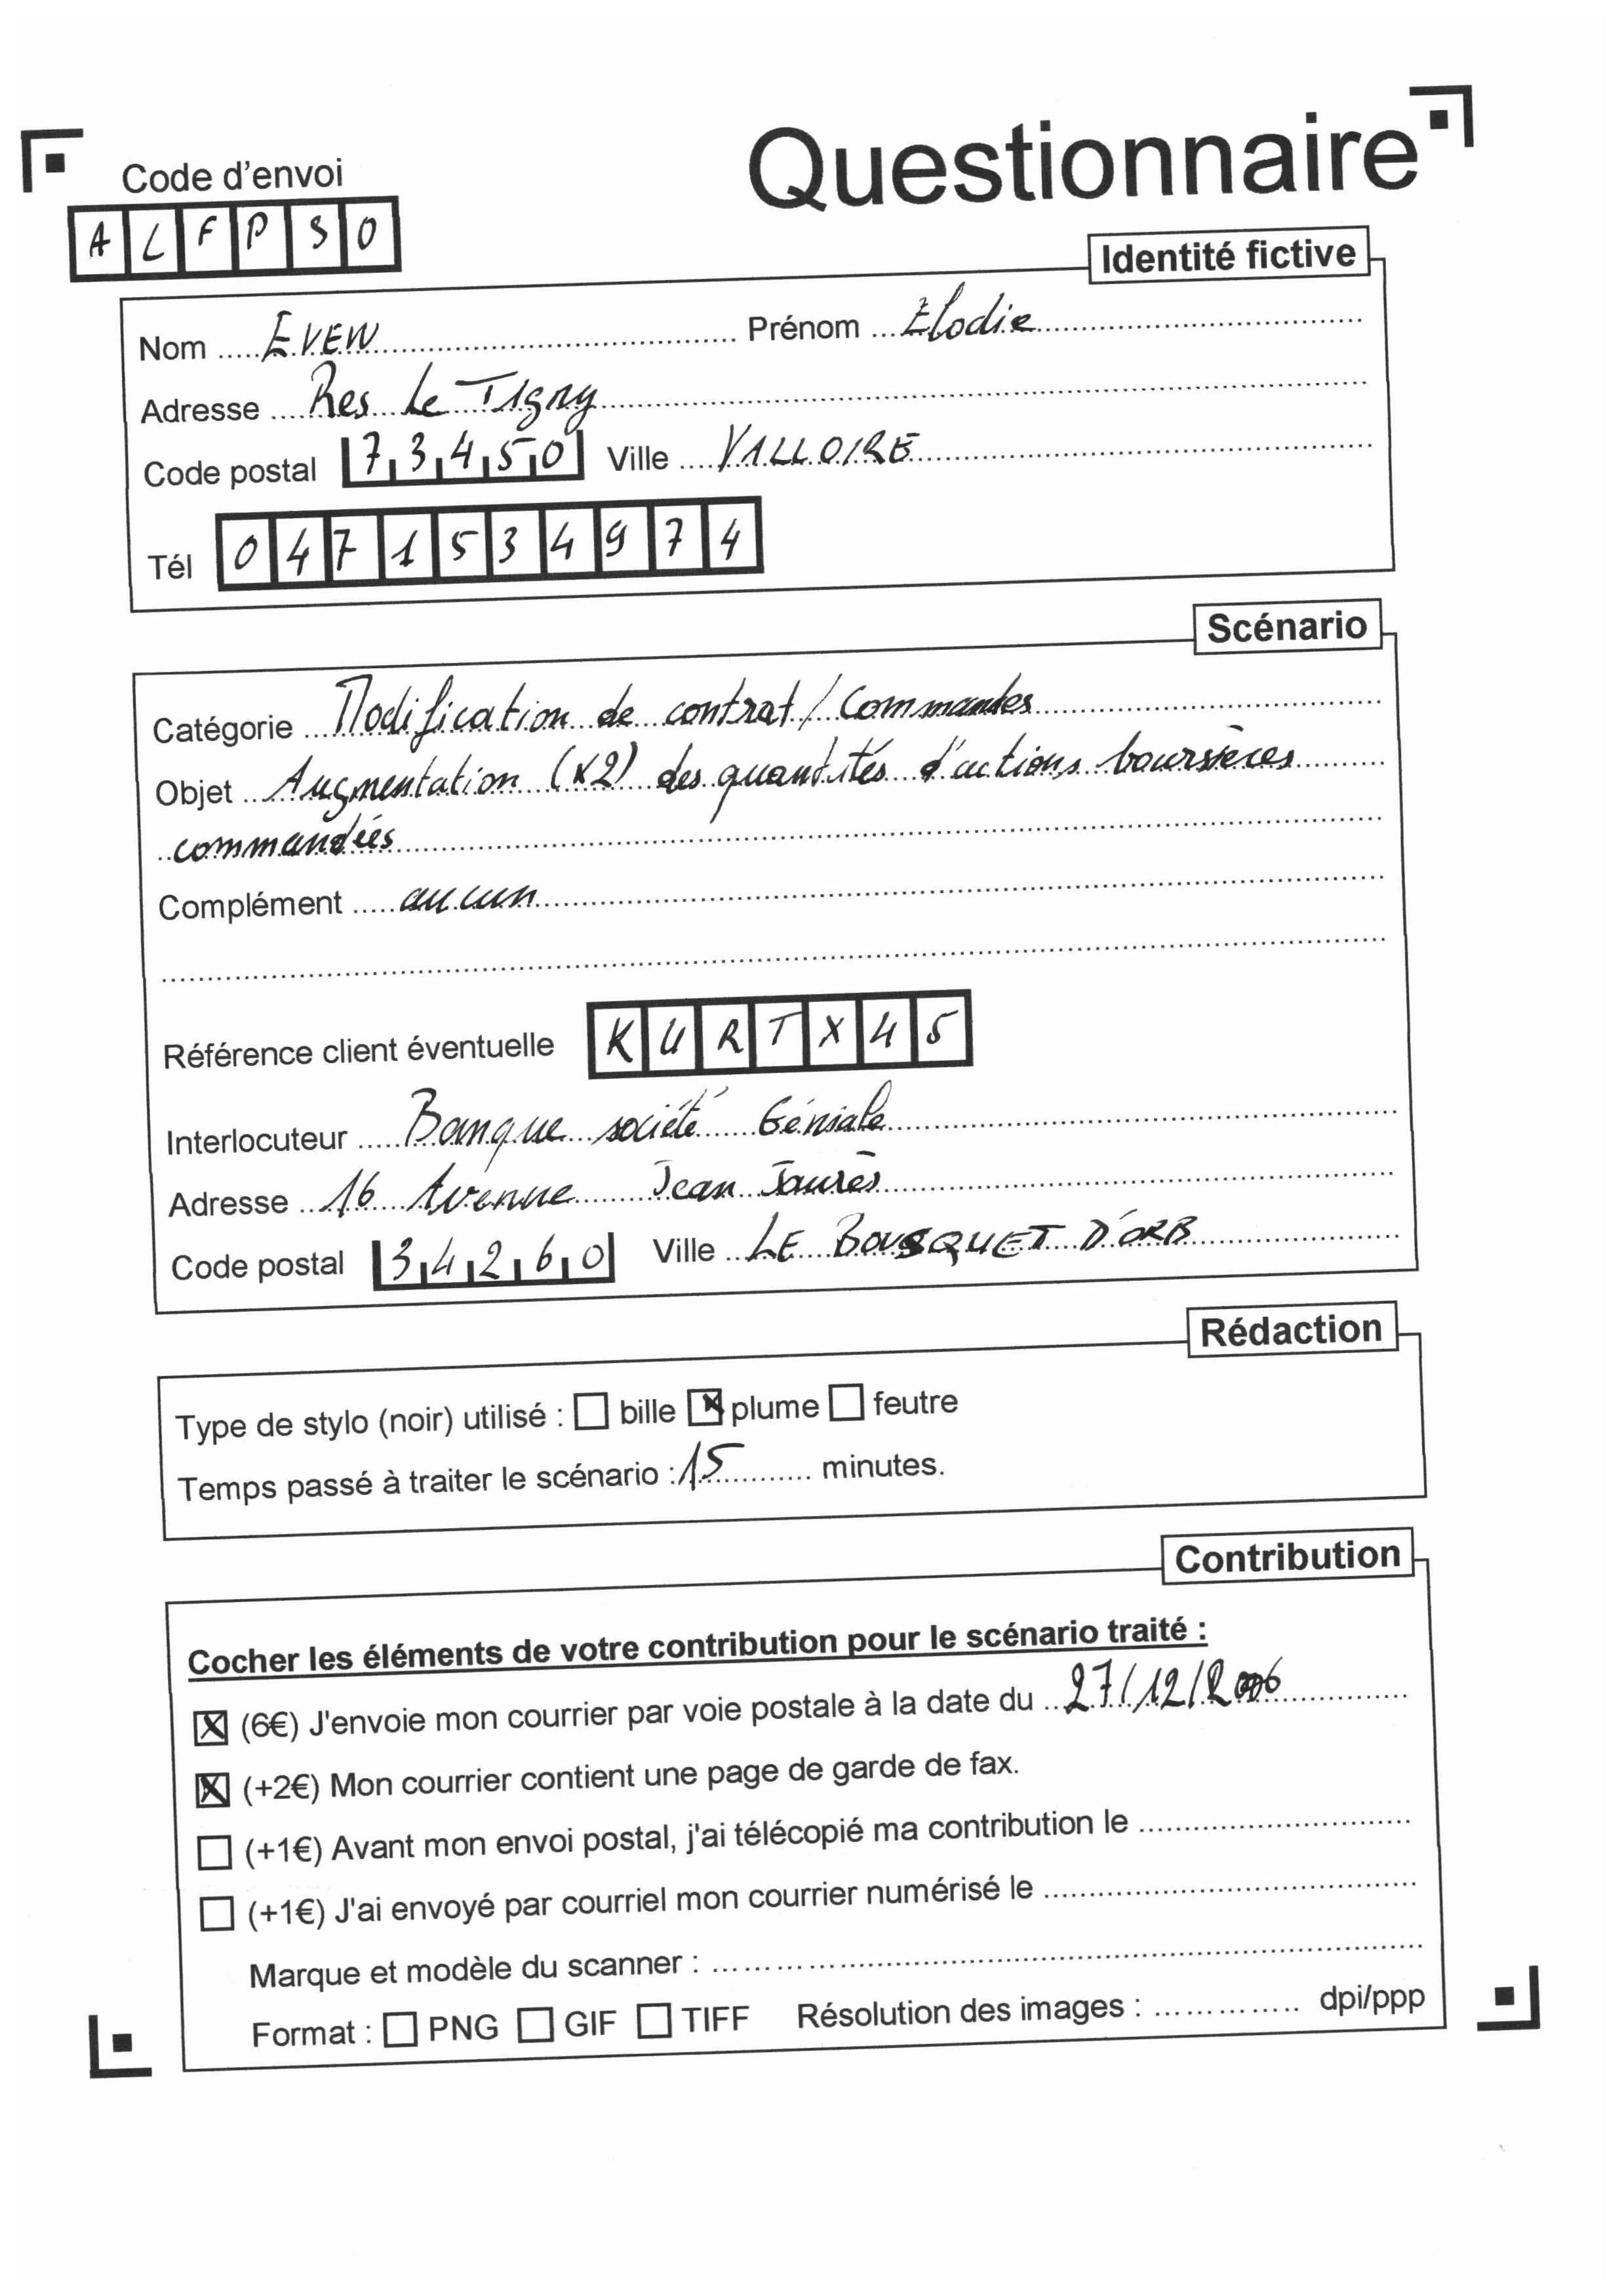 Questionnaire
Code d'envoi
A L F P S O
Identité fictive
Nom EVEN Prénom Elodie
Adresse Res Le Tigny
Code postal 73450 Ville VALLOIRE
Tél 0471534974
Scénario
Catégorie Modification de contrat / Commandes
Objet Augmentation (x2) des quantités d'actions boursières
commandées
Complément aucun
Référence client éventuelle KURTX45
Interlocuteur Banque société Géniale
Adresse 16 Avenue Jean Jaurès
Code postal 34260 Ville LE BOUSQUET D'ORB
Rédaction
Type de stylo (noir) utilisé : ☐ bille ☒ plume ☐ feutre
Temps passé à traiter le scénario : 15 minutes.
Contribution
Cocher les éléments de votre contribution pour le scénario traité :
☒ (6€) J'envoie mon courrier par voie postale à la date du 27/12/2006
☒ (+2€) Mon courrier contient une page de garde de fax.
☐ (+1€) Avant mon envoi postal, j'ai télécopié ma contribution le
☐ (+1€) J'ai envoyé par courriel mon courrier numérisé le
Marque et modèle du scanner :
Format : ☐ PNG ☐ GIF ☐ TIFF Résolution des images : dpi/ppp